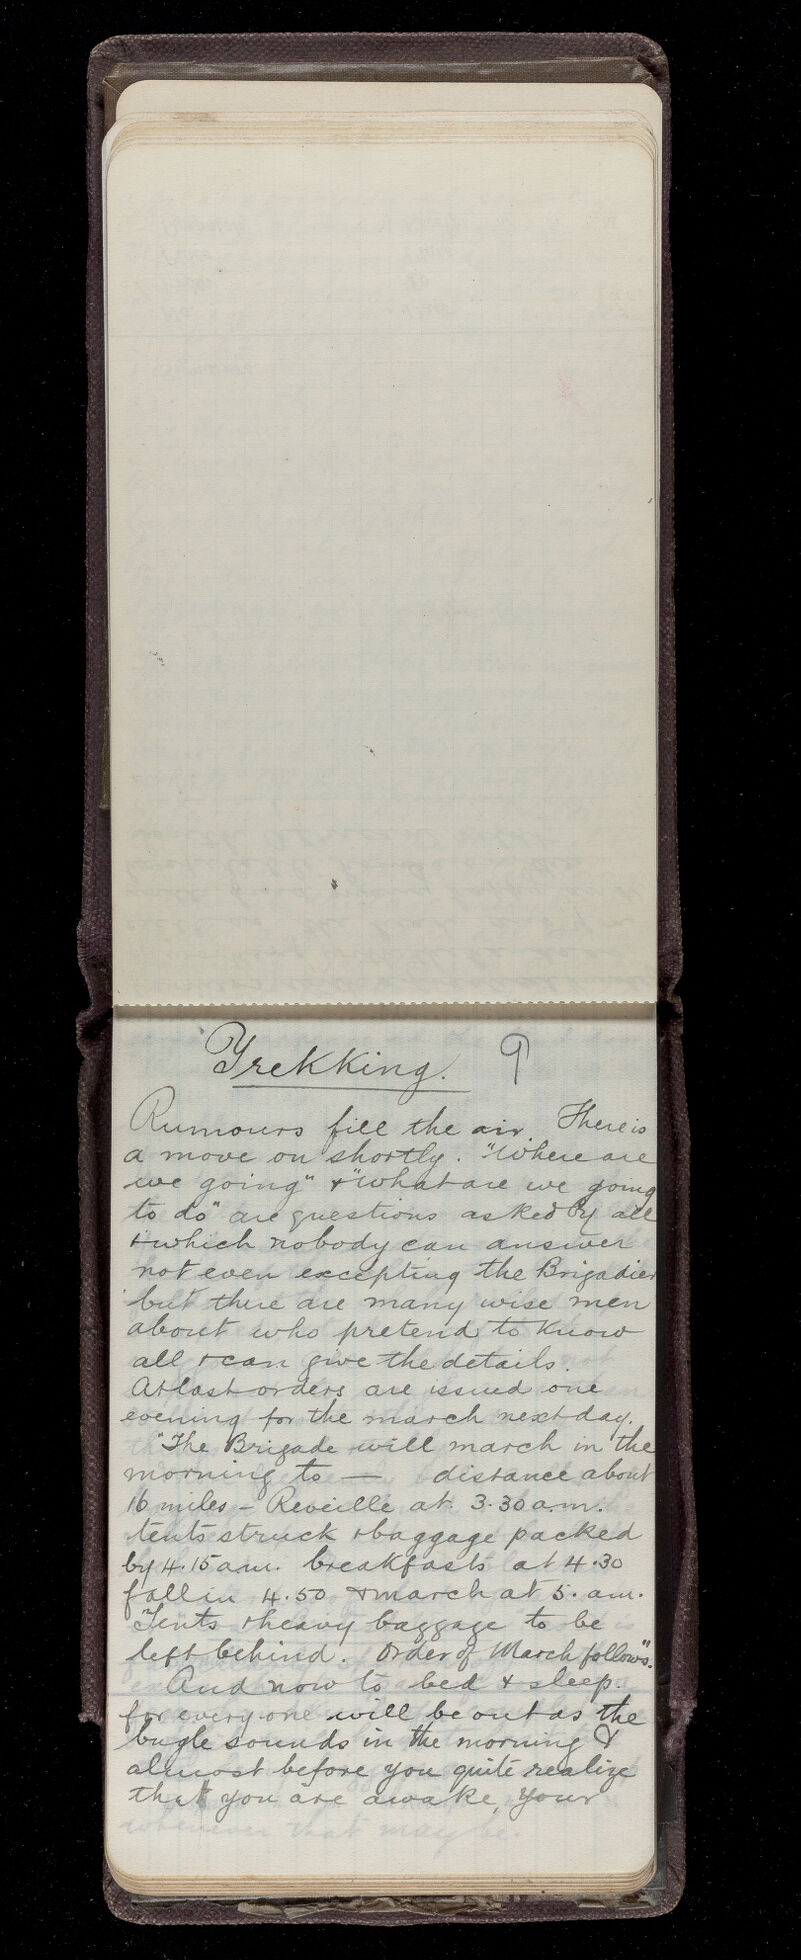 Trekking. 9
Rumours fill the air. There is
a move on shortly. "Where are
we going" & "What are we going
to do" are questions asked by all
& which nobody can answer
not even excepting the Brigadier
but there are many wise men
about who pretend to know
all & can give the details.
At last orders are issued one
evening for the march next day.
"The Brigade will march in the
morning to — distance about
16 miles – Reveille at 3.30 a.m.
tents struck & baggage packed
by 4.15 am. breakfasts at 4.30
fall in 4.50 & march at 5. am.
Tents & heavy baggage to be
left behind. Order of March follows".
And now to bed & sleep
for every one will be out as the
bugle sounds in the morning &
almost before you quite realize
that you are awake, your